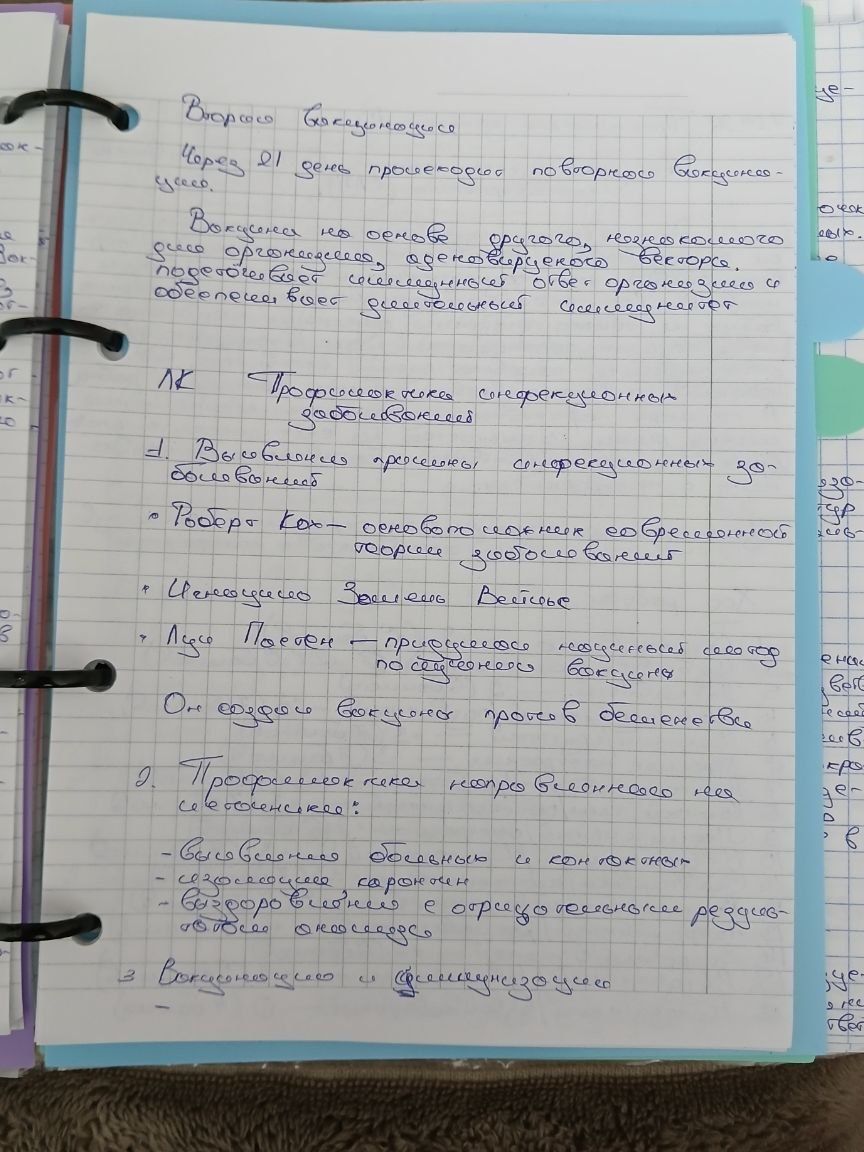 Вторая вакцинация
Через 21 день происходит повторная вакцина-
ция.
Вакцина на основе другого, незнакомого
для организма, аденовирусного вектора,
подстёгивает иммунный ответ организма и
обеспечивает длительный иммунитет
ЛК Профилактика инфекционных
заболеваний
1. Выявление причины инфекционных за-
болеваний
• Роберт Кох — основоположник современной
теории заболеваний
• Игнациио Земмель Вейсье
• Луи Пастен — принципа научный метод
по созданию вакцины
Он создал вакцины против бешенства
2. Профилактика направленная на
источники:
- выявление больных и контактных
- изоляция карантин
- выздоровление с отрицательными резуль-
татами анализа
3 Вакцинация и иммунизация
-